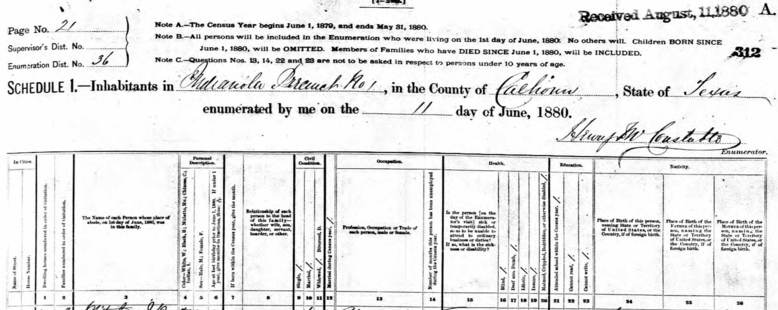 Received August, 11, 1880 A.
Page No. 21
Note A.—The Census Year begins June 1, 1879, and ends May 31, 1880.
Supervisor's Dist. No.
Note B.—All persons will be included in the Enumeration who were living on the 1st day of June, 1880. No others will. Children BORN SINCE
June 1, 1880, will be OMITTED. Members of Families who have DIED SINCE June 1, 1880, will be INCLUDED.
312
Enumeration Dist. No. 36
Note C.—Questions Nos. 13, 14, 22 and 23 are not to be asked in respect to persons under 10 years of age.
SCHEDULE 1.—Inhabitants in Indianola Precinct No 1, in the County of Calhoun, State of Texas
enumerated by me on the 11 day of June, 1880.
Enumerator.
In Cities.
Name of Street.
House Number.
Dwelling houses numbered in order of visitation.
Families numbered in order of visitation.
The Name of each Person whose place of abode, on 1st day of June, 1880, was in this family.
Personal Description.
Color—White, W; Black, B; Mulatto, Mu; Chinese, C; Indian, I.
Sex—Male, M; Female, F.
Age at last birthday prior to June 1, 1880. If under 1 year, give months in fractions, thus:
If born within the Census year, give the month.
Relationship of each person to the head of this family—whether wife, son, daughter, servant, boarder, or other.
Civil Condition.
Single, /
Married, /
Widowed, / Divorced, D.
Married during Census year, /
Occupation.
Profession, Occupation or Trade of each person, male or female.
Number of months this person has been unemployed during the Census year.
Health.
Is the person [on the day of the Enumerator's visit] sick or temporarily disabled, so as to be unable to attend to ordinary business or duties? If so, what is the sickness or disability?
Blind, /
Deaf and Dumb, /
Idiotic, /
Insane, /
Maimed, Crippled, Bedridden, or otherwise disabled, /
Education.
Attended school within the Census year, /
Cannot read, /
Cannot write, /
Nativity.
Place of Birth of this person, naming State or Territory of United States, or the Country, if of foreign birth.
Place of Birth of the Father of this person, naming the State or Territory of United States, or the Country, if of foreign birth.
Place of Birth of the Mother of this person, naming the State or Territory of United States, or the Country, if of foreign birth.
1 2 3 4 5 6 7 8 9 10 11 12 13 14 15 16 17 18 19 20 21 22 23 24 25 26